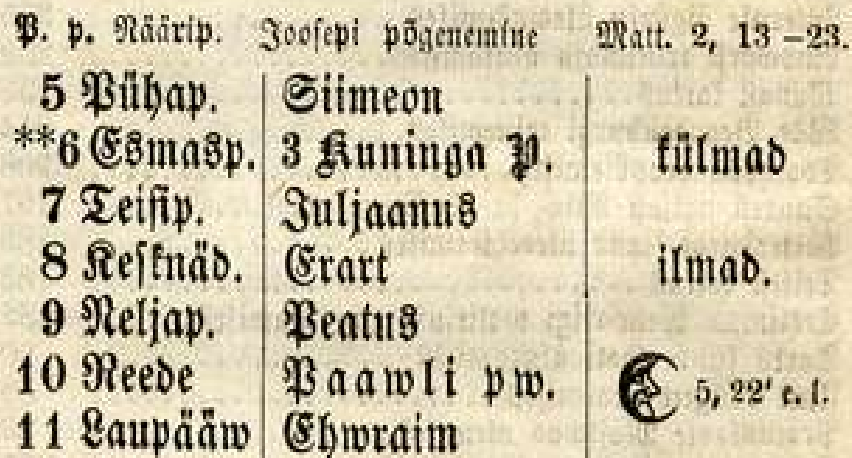 P. p. Näärip. Joosepi põgenemine Matt. 2, 13–23.
5 Pühap. Siimeon
**6 Esmasp. 3 Kuninga P. külmad
7 Teisip. Juljaanus
8 Kesknäd. Erart ilmad.
9 Neljap. Peatus
10 Reede Paawli pw.
11 Laupääw Ehwraim 5, 22' e. l.